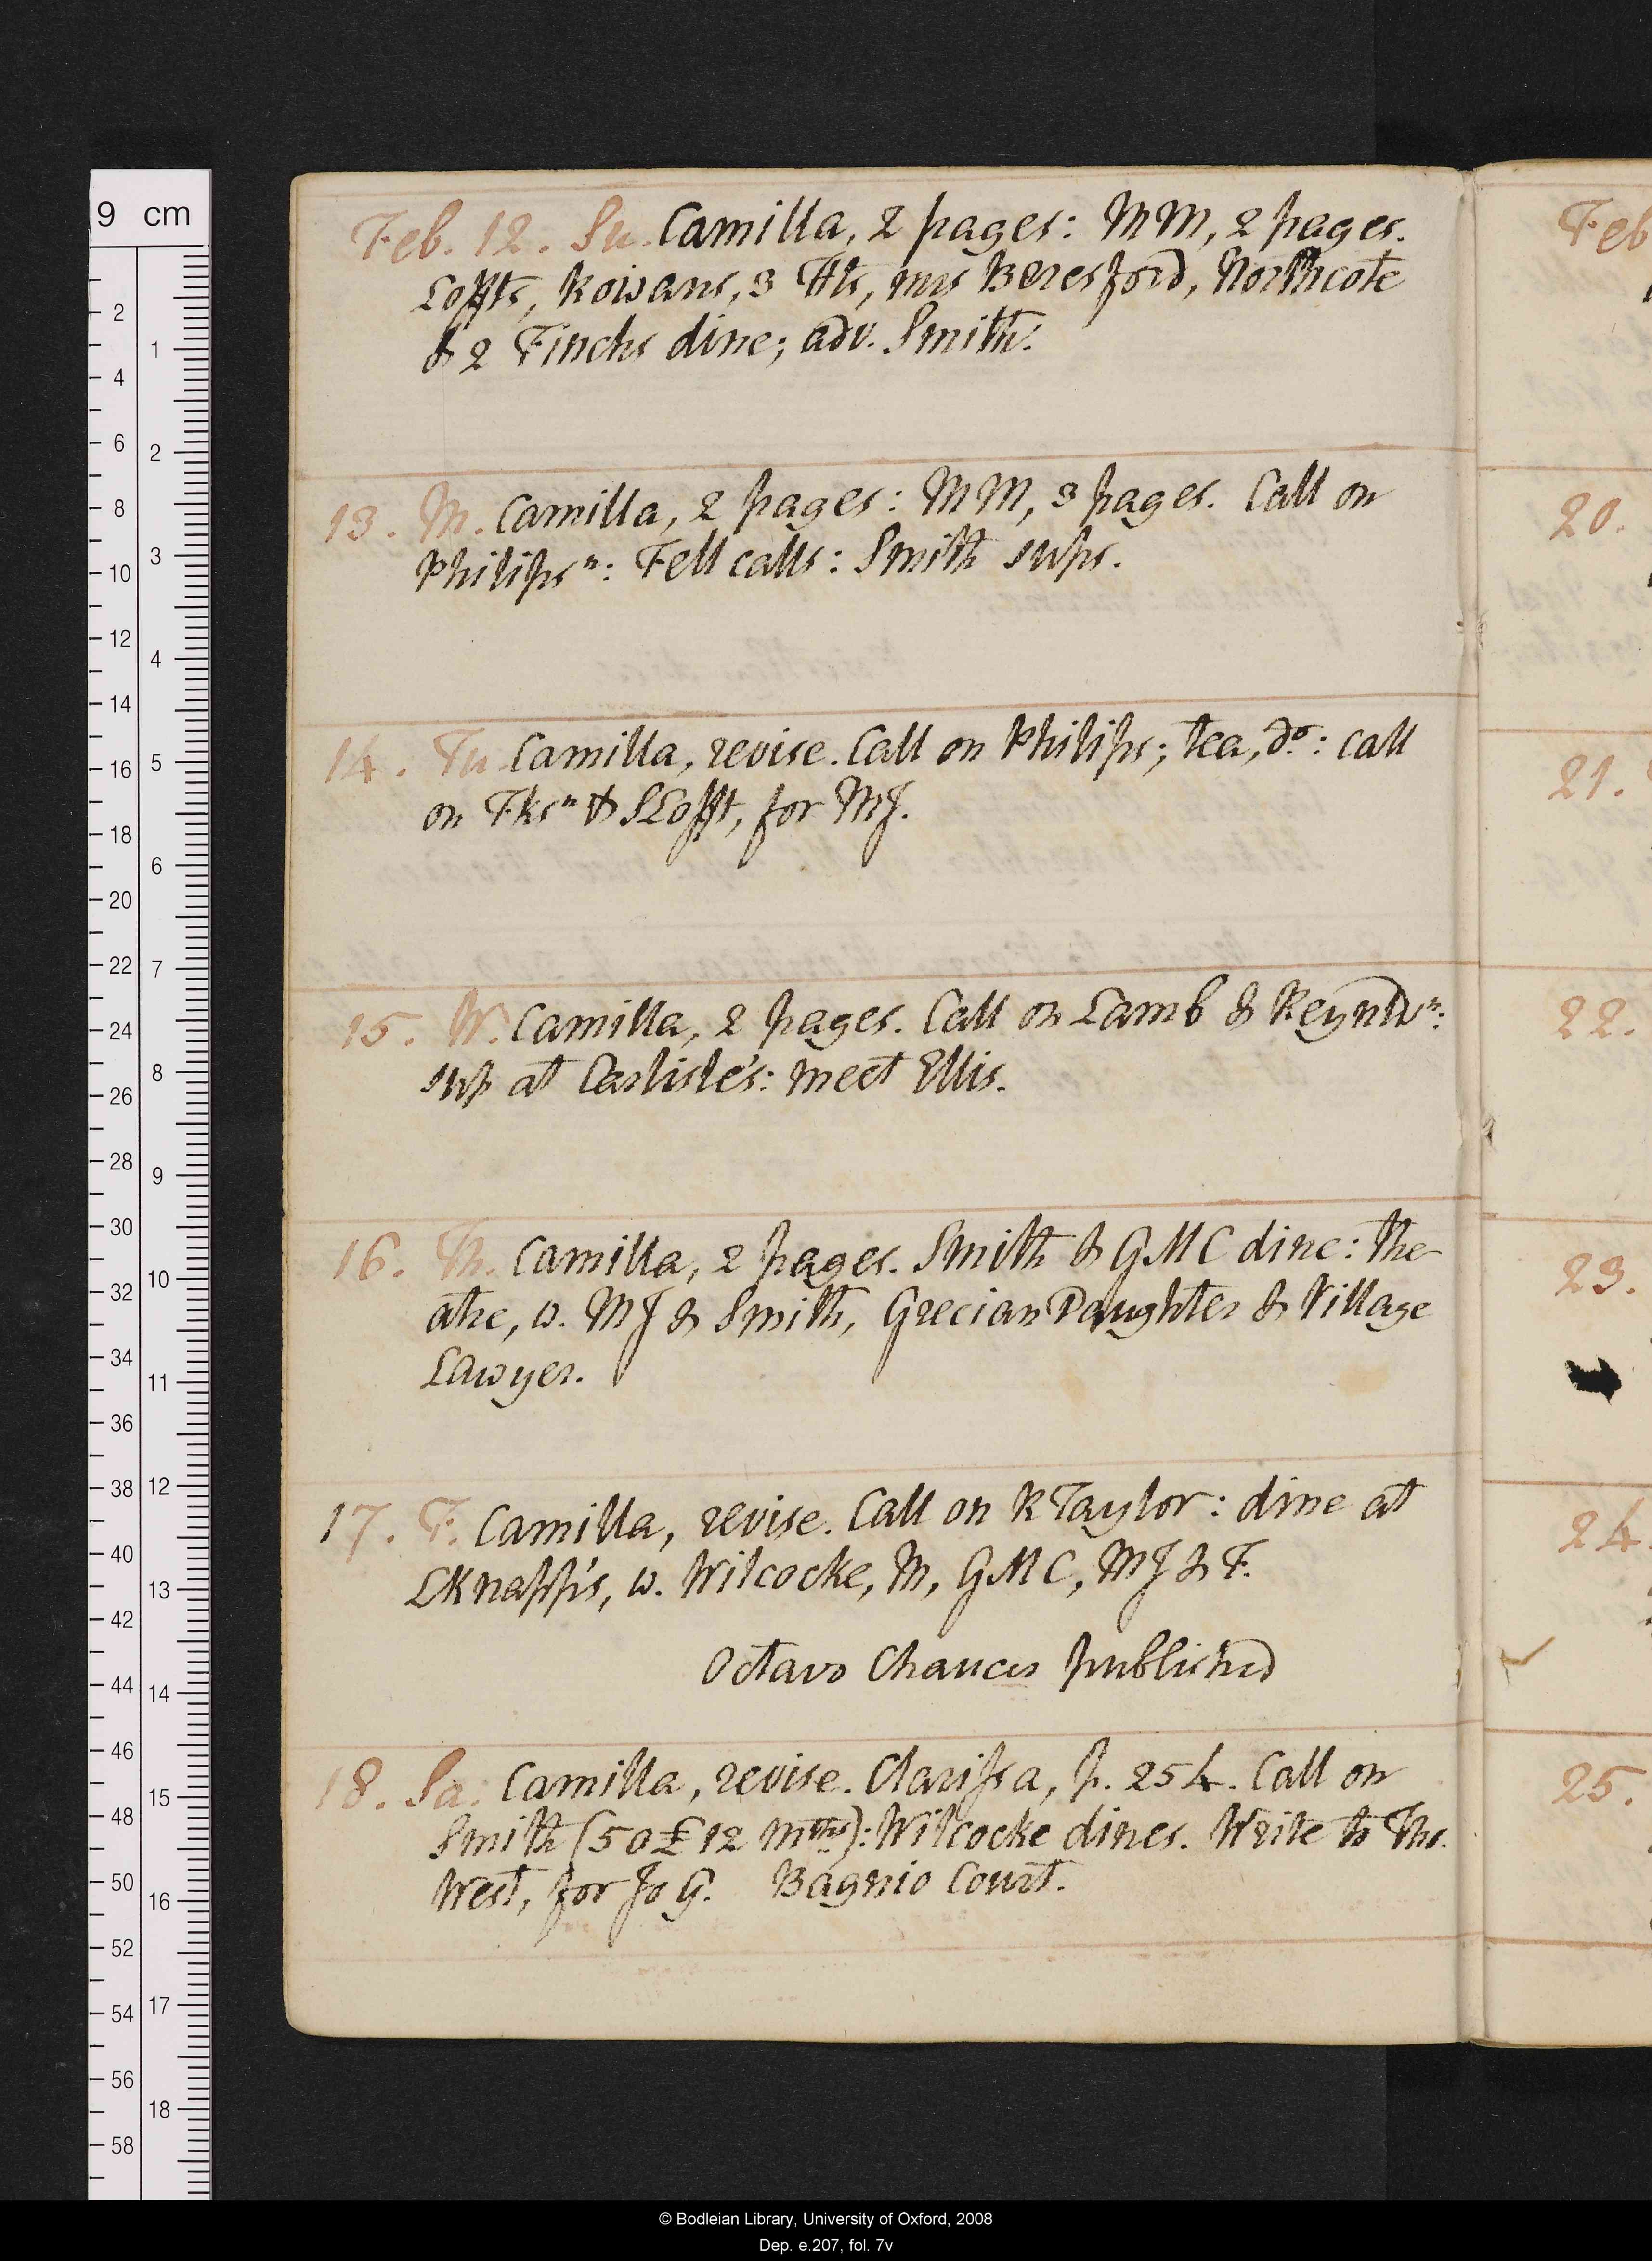 Feb. 12. Su. Camilla, 2 pages: MM, 2 pages.
Loffts, Rowans, 3 Hts, mrs Beresford, Northcote
& 2 Finchs dine; adv. Smith.
13. M. Camilla, 2 pages: MM, 3 pages. Call on
Philipsn: Fell calls: Smith sups.
14. Tu. Camilla, revise. Call on Philips; tea, do: call
on Fksn & SLofft, for MJ.
15. W. Camilla, 2 pages. Call on Lamb & Reynldsn:
sup at Carlisle's: meet Ellis.
16. Th. Camilla, 2 pages. Smith & GMC dine: the
atre, w. MJ & Smith, Grecian Daughter & Village
Lawyer.
17. F. Camilla, revise. Call on R Taylor: dine at
LKnapp's, w. Wilcocke, M, GMC, MJ & F.
Octavo Chaucer published
18. Sa. Camilla, revise. Clarissa, p. 254. Call on
Smith (50£ 12 mths): Wilcocke dines. Write to Ths.
West, for Jo G. Bagnio Court.
Feb
20.
21.
22.
23.
24.
25.
9 cm
2
4
6
8
10
12
14
16
18
20
22
24
26
28
30
32
34
36
38
40
42
44
46
48
50
52
54
56
58
1
2
3
4
5
6
7
8
9
10
11
12
13
14
15
16
17
18
© Bodleian Library, University of Oxford, 2008
Dep. e.207, fol. 7v